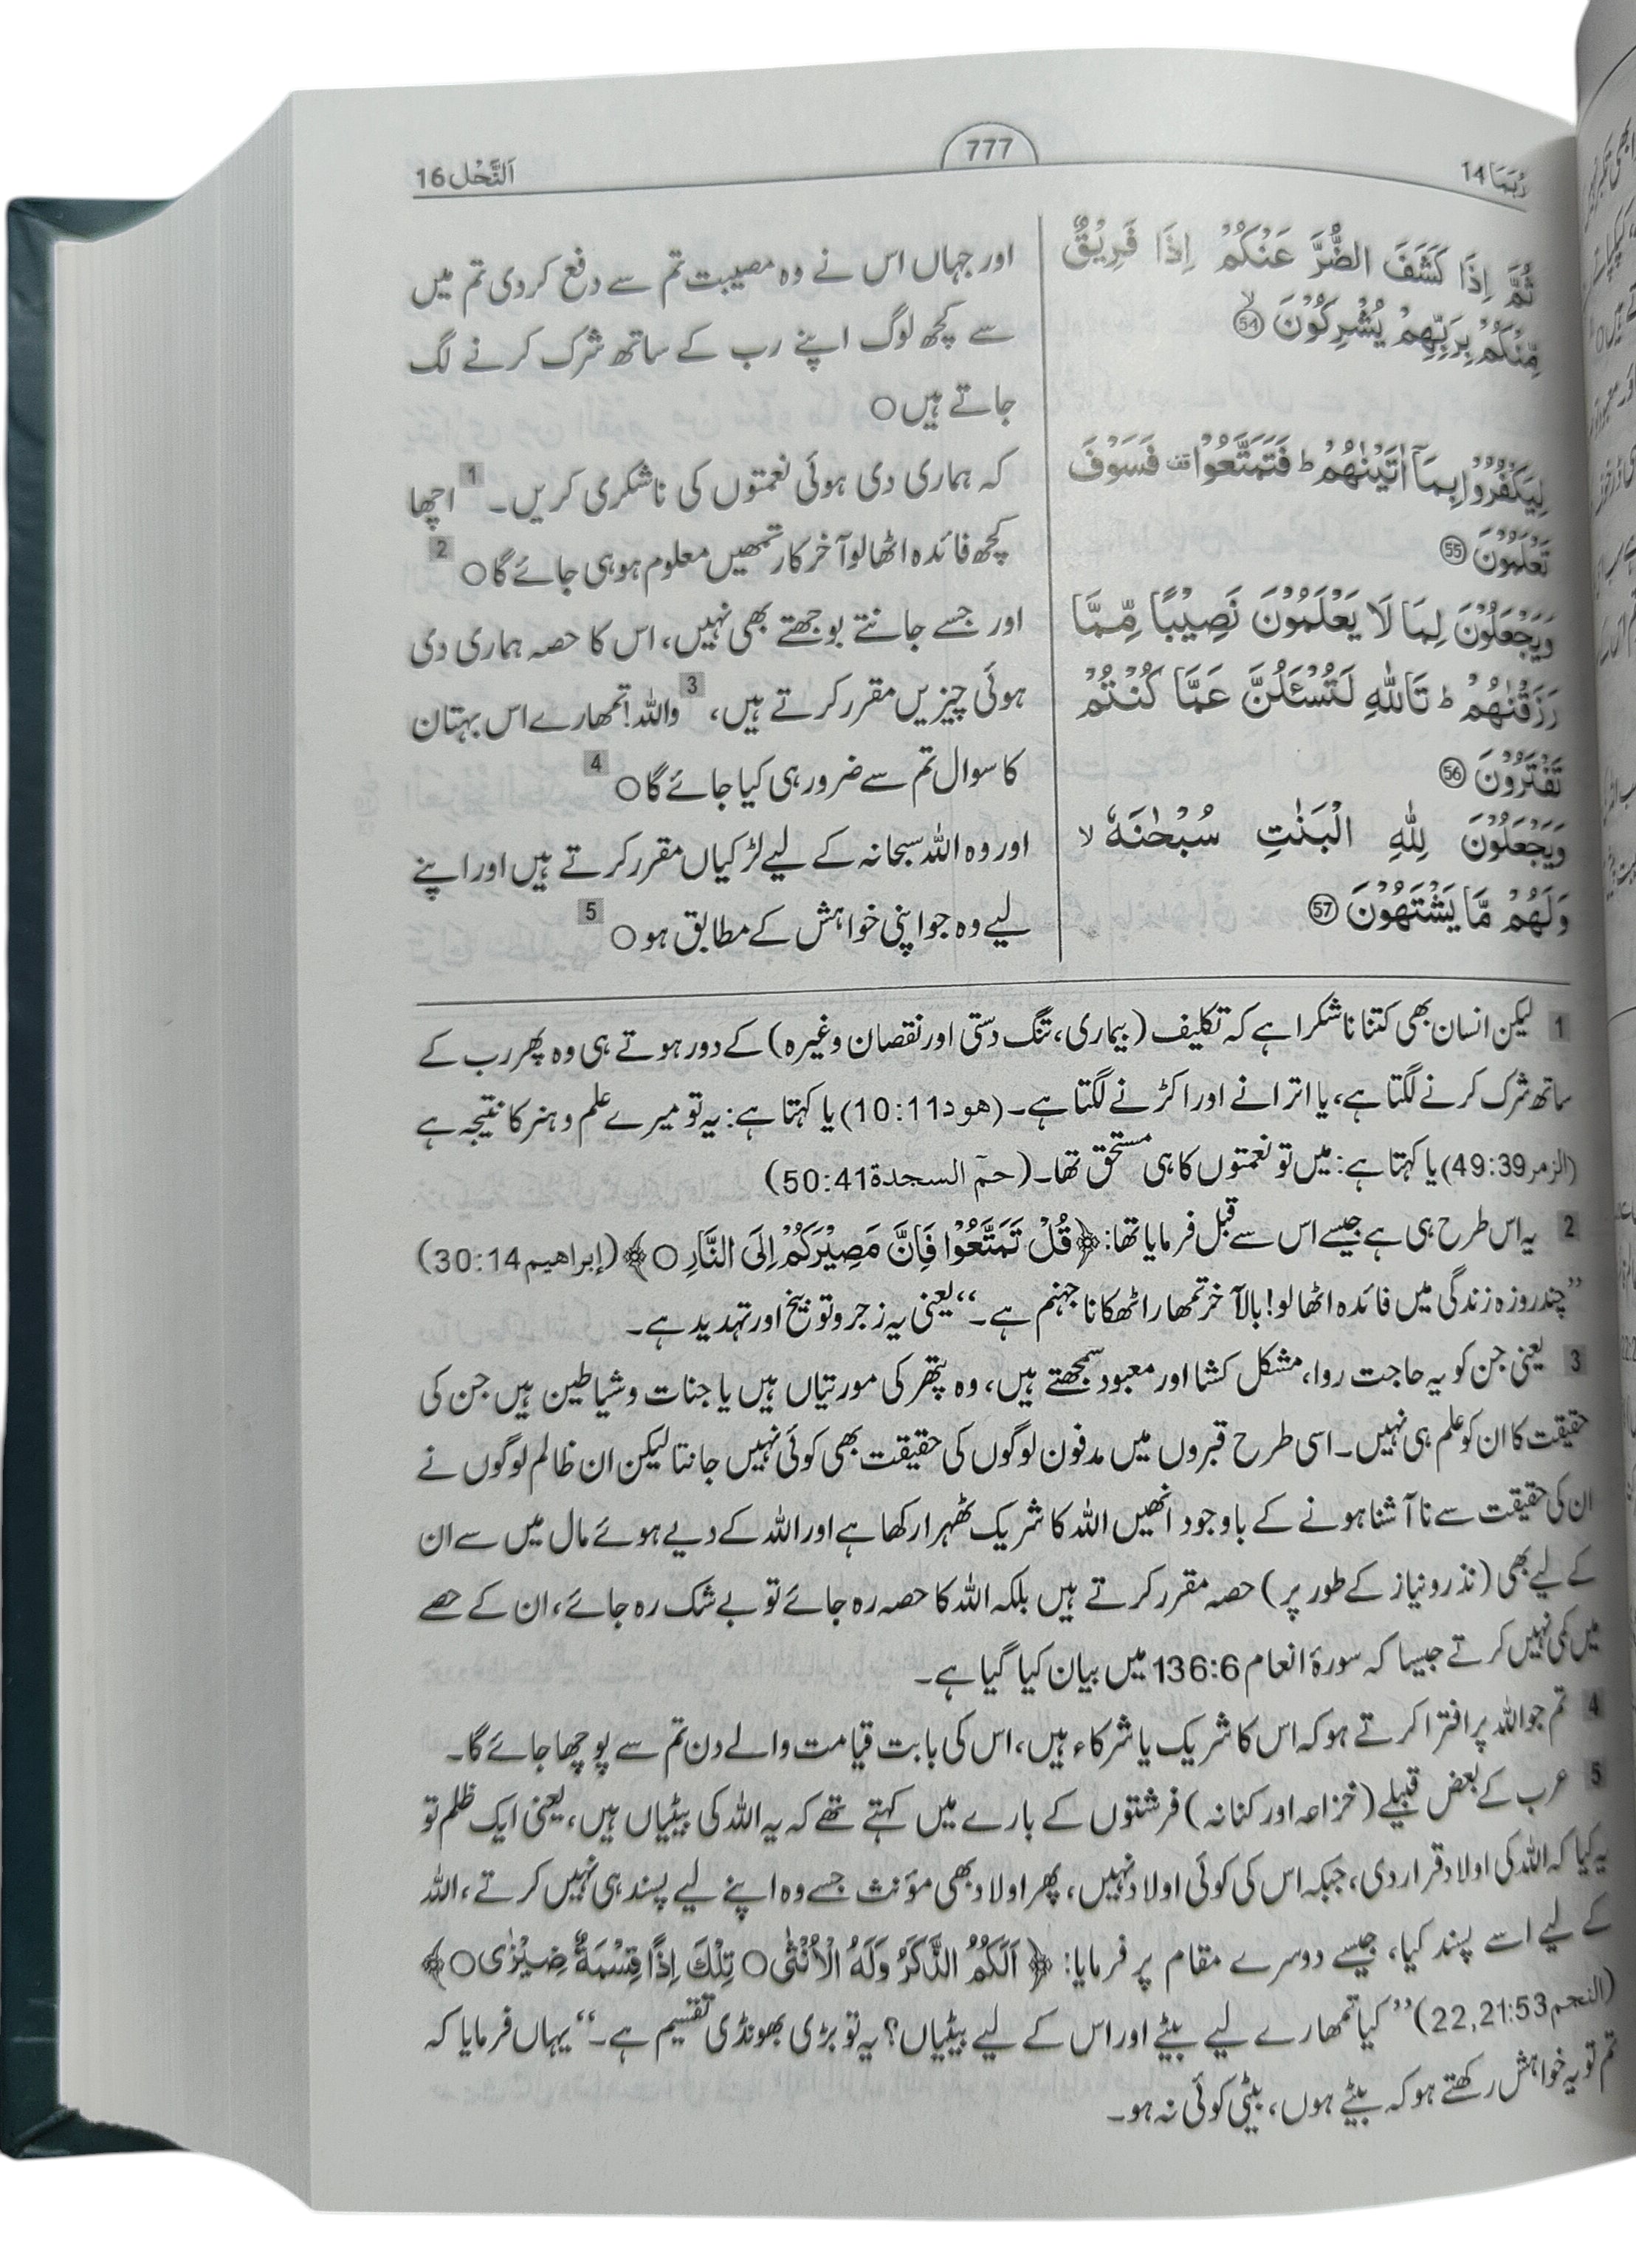 رُبَمَا 14
777
اَلنَّحْل 16
ثُمَّ اِذَا كَشَفَ الضُّرَّ عَنْكُمْ اِذَا فَرِيْقٌ
مِّنْكُمْ بِرَبِّهِمْ يُشْرِكُوْنَ ۙ 54
لِيَكْفُرُوْا بِمَآ اٰتَيْنٰهُمْ ط فَتَمَتَّعُوْا قف فَسَوْفَ
تَعْلَمُوْنَ 55
وَيَجْعَلُوْنَ لِمَا لَا يَعْلَمُوْنَ نَصِيْبًا مِّمَّا
رَزَقْنٰهُمْ ط تَاللّٰهِ لَتُسْـَٔلُنَّ عَمَّا كُنْتُمْ
تَفْتَرُوْنَ 56
وَيَجْعَلُوْنَ لِلّٰهِ الْبَنٰتِ سُبْحٰنَهٗ لا
وَلَهُمْ مَّا يَشْتَهُوْنَ 57
اور جہاں اس نے وہ مصیبت تم سے دفع کر دی تم میں
سے کچھ لوگ اپنے رب کے ساتھ شرک کرنے لگ
جاتے ہیں ○
کہ ہماری دی ہوئی نعمتوں کی ناشکری کریں۔ 1 اچھا
کچھ فائدہ اٹھا لو آخرکار تمھیں معلوم ہو ہی جائے گا ○ 2
اور جسے جانتے بوجھتے بھی نہیں، اس کا حصہ ہماری دی
ہوئی چیزیں مقرر کرتے ہیں، 3 واللہ! تمھارے اس بہتان
کا سوال تم سے ضرور ہی کیا جائے گا ○ 4
اور وہ اللہ سبحانہ کے لیے لڑکیاں مقرر کرتے ہیں اور اپنے
لیے وہ جو اپنی خواہش کے مطابق ہو ○ 5
1 لیکن انسان بھی کتنا ناشکرا ہے کہ تکلیف (بیماری، تنگ دستی اور نقصان وغیرہ) کے دور ہوتے ہی وہ پھر رب کے
ساتھ شرک کرنے لگتا ہے، یا اترانے اور اکڑنے لگتا ہے۔ (ھود 10:11) یا کہتا ہے: یہ تو میرے علم و ہنر کا نتیجہ ہے
(الزمر 49:39) یا کہتا ہے: میں تو نعمتوں کا ہی مستحق تھا۔ (حمٓ السجدة 50:41)
2 یہ اس طرح ہی ہے جیسے اس سے قبل فرمایا تھا: ﴿قُلْ تَمَتَّعُوْا فَاِنَّ مَصِيْرَكُمْ اِلَى النَّارِ ○﴾ (إبراهيم 30:14)
”چند روزہ زندگی میں فائدہ اٹھا لو! بالآخر تمھارا ٹھکانا جہنم ہے۔“ یعنی یہ زجر و توبیخ اور تہدید ہے۔
3 یعنی جن کو یہ حاجت روا، مشکل کشا اور معبود سمجھتے ہیں، وہ پتھر کی مورتیاں ہیں یا جنات و شیاطین ہیں جن کی
حقیقت کا ان کو علم ہی نہیں۔ اسی طرح قبروں میں مدفون لوگوں کی حقیقت بھی کوئی نہیں جانتا لیکن ان ظالم لوگوں نے
ان کی حقیقت سے نا آشنا ہونے کے باوجود انھیں اللہ کا شریک ٹھہرا رکھا ہے اور اللہ کے دیے ہوئے مال میں سے ان
کے لیے بھی (نذر و نیاز کے طور پر) حصہ مقرر کرتے ہیں بلکہ اللہ کا حصہ رہ جائے تو بے شک رہ جائے، ان کے حصے
میں کمی نہیں کرتے جیسا کہ سورۂ انعام 136:6 میں بیان کیا گیا ہے۔
4 تم جو اللہ پر افترا کرتے ہو کہ اس کا شریک یا شرکاء ہیں، اس کی بابت قیامت والے دن تم سے پوچھا جائے گا۔
5 عرب کے بعض قبیلے (خزاعہ اور کنانہ) فرشتوں کے بارے میں کہتے تھے کہ یہ اللہ کی بیٹیاں ہیں، یعنی ایک ظلم تو
یہ کیا کہ اللہ کی اولاد قرار دی، جبکہ اس کی کوئی اولاد نہیں، پھر اولاد بھی مؤنث جسے وہ اپنے لیے پسند ہی نہیں کرتے، اللہ
کے لیے اسے پسند کیا، جیسے دوسرے مقام پر فرمایا: ﴿اَلَكُمُ الذَّكَرُ وَلَهُ الْاُنْثٰى ○ تِلْكَ اِذًا قِسْمَةٌ ضِيْزٰى ○﴾
(النجم 22,21:53) ”کیا تمھارے لیے بیٹے اور اس کے لیے بیٹیاں؟ یہ تو بڑی بھونڈی تقسیم ہے۔“ یہاں فرمایا کہ
تم تو یہ خواہش رکھتے ہو کہ بیٹے ہوں، بیٹی کوئی نہ ہو۔